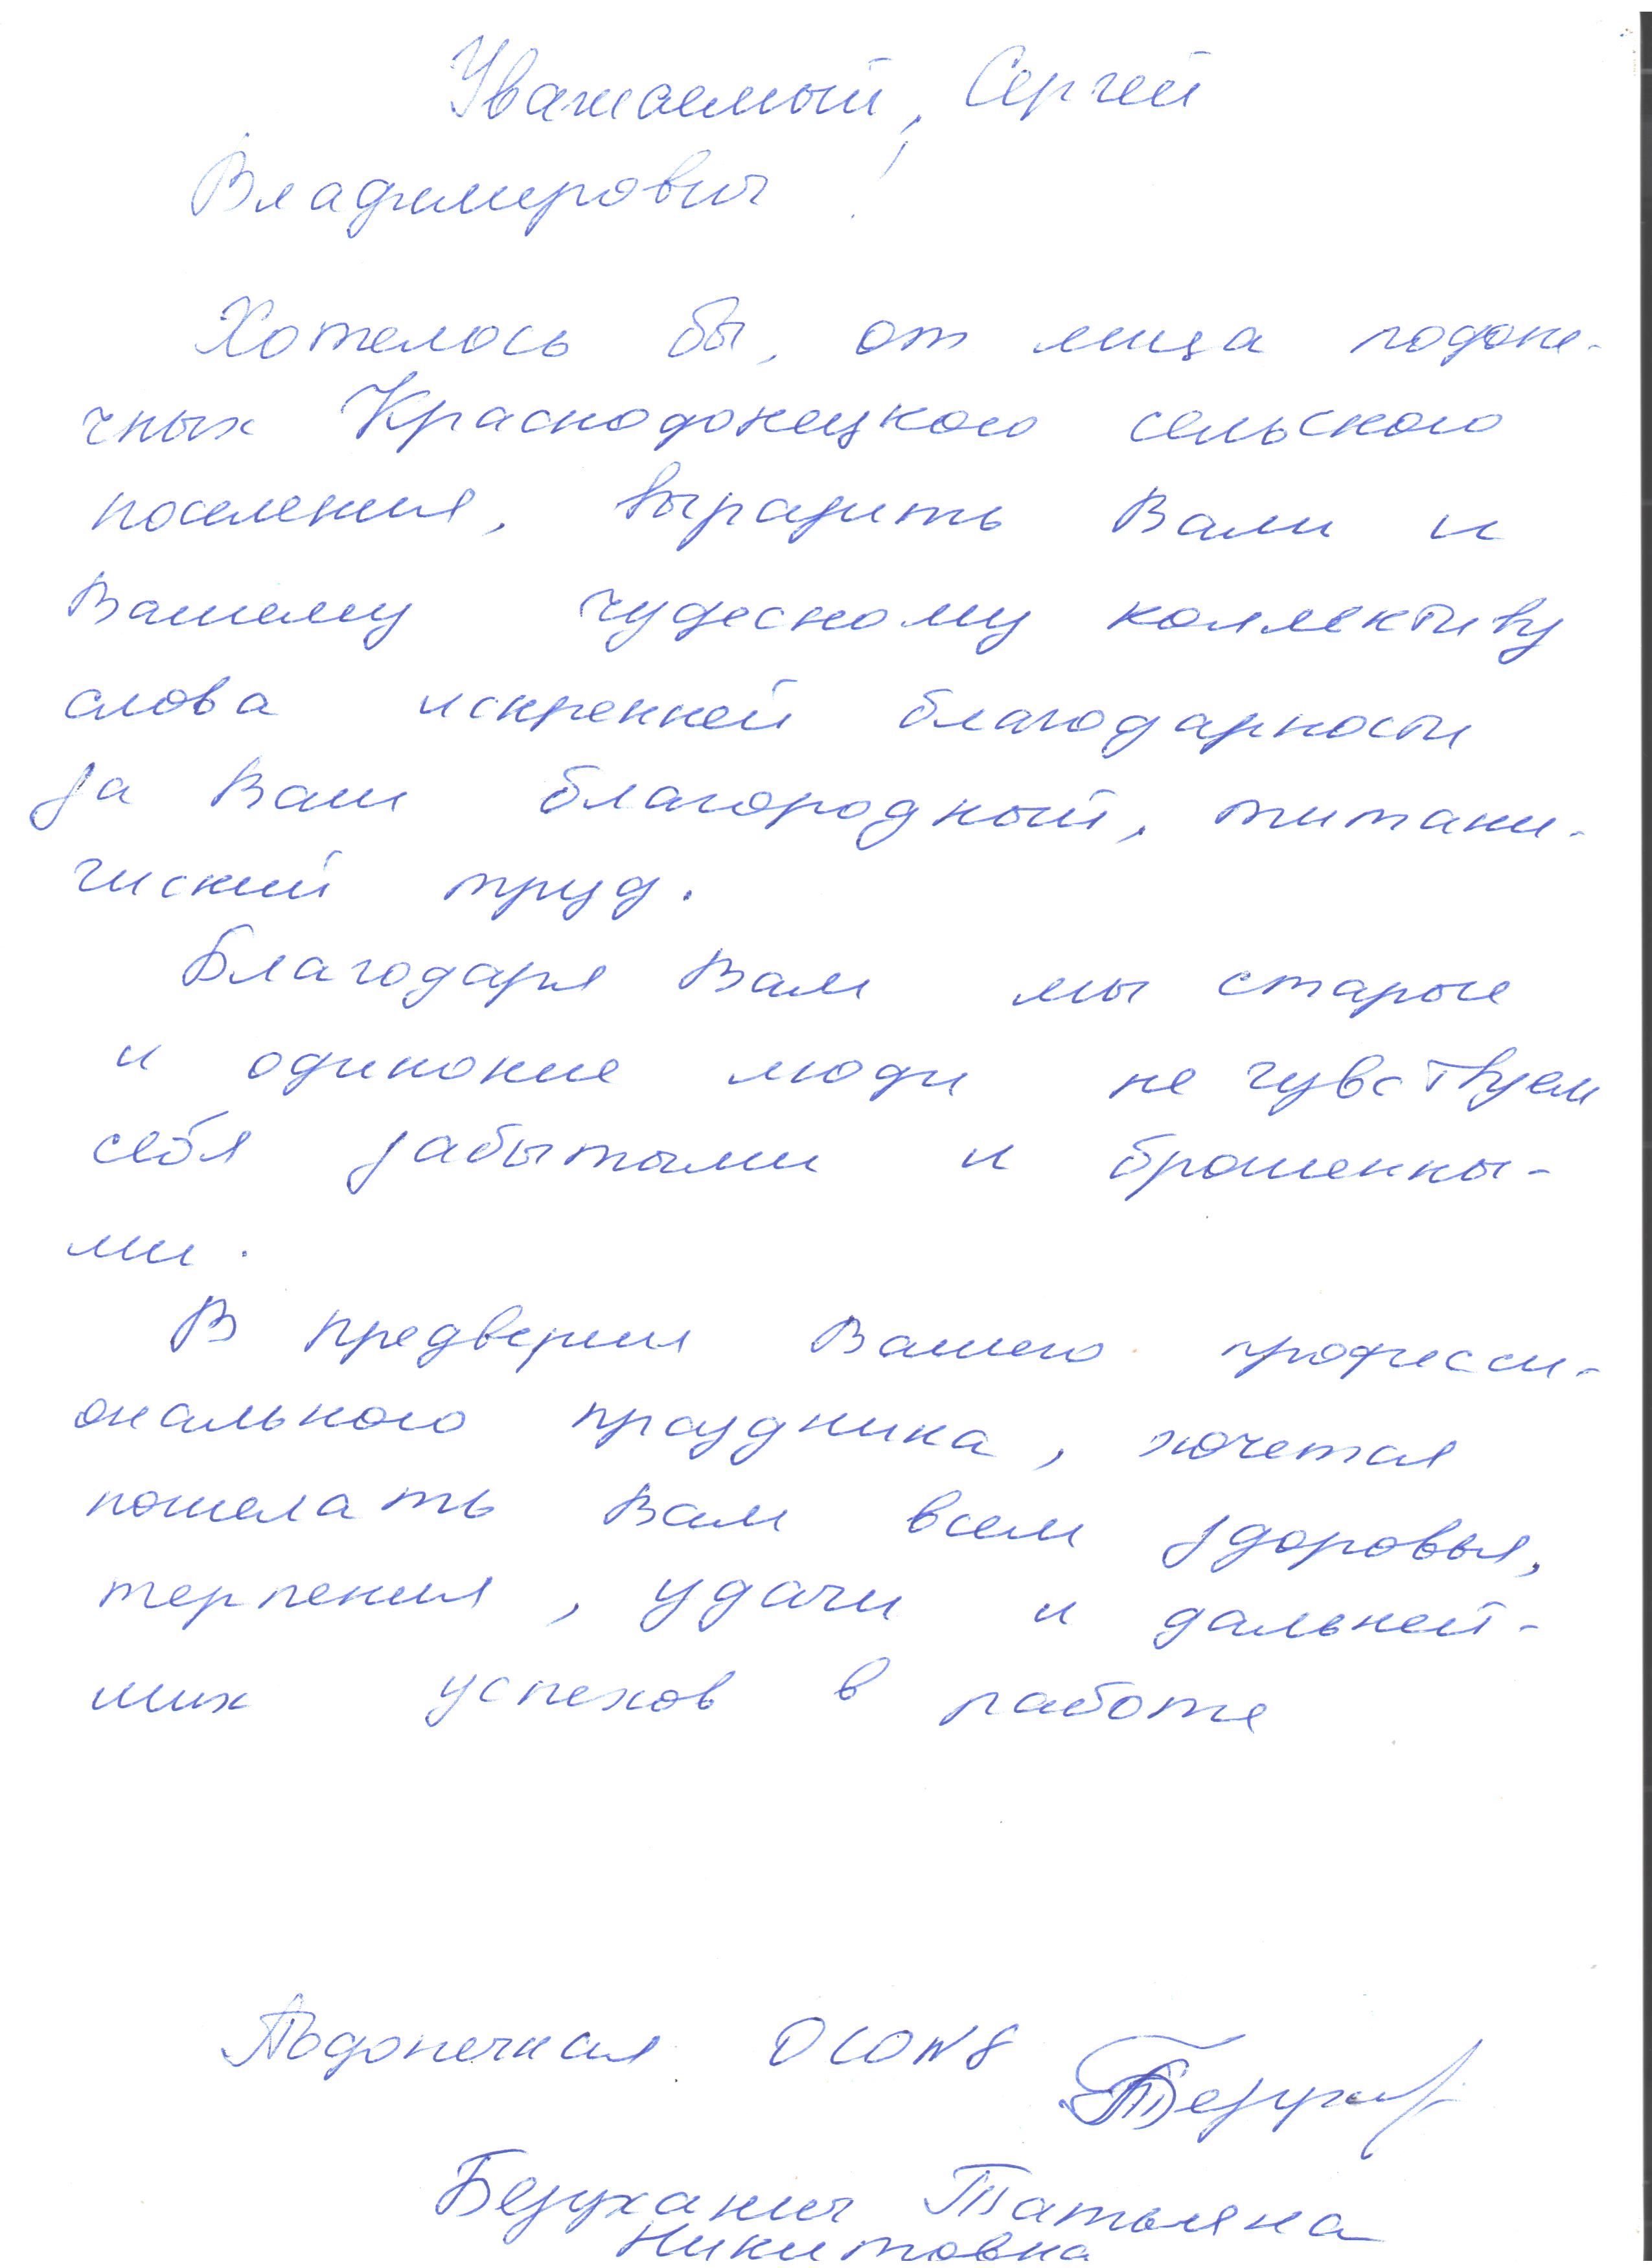 Уважаемый, Сергей
Владимирович!
Хотелось бы, от лица подопе-
чных Краснодонецкого сельского
поселения, выразить Вам и
Вашему чудесному коллективу
слова искренней благодарности
за Ваш благородный, титани-
чиский труд.
Благодаря Вам мы старые
и одинокие люди не чувствуем
себя забытыми и брошенны-
ми.
В предверии Вашего професси-
онального праздника, хочется
пожелать Вам всем здоровья,
терпения, удачи и дальней-
ших успехов в работе
Подопечная ОСО №8
Безуханич Татьяна
Никитовна